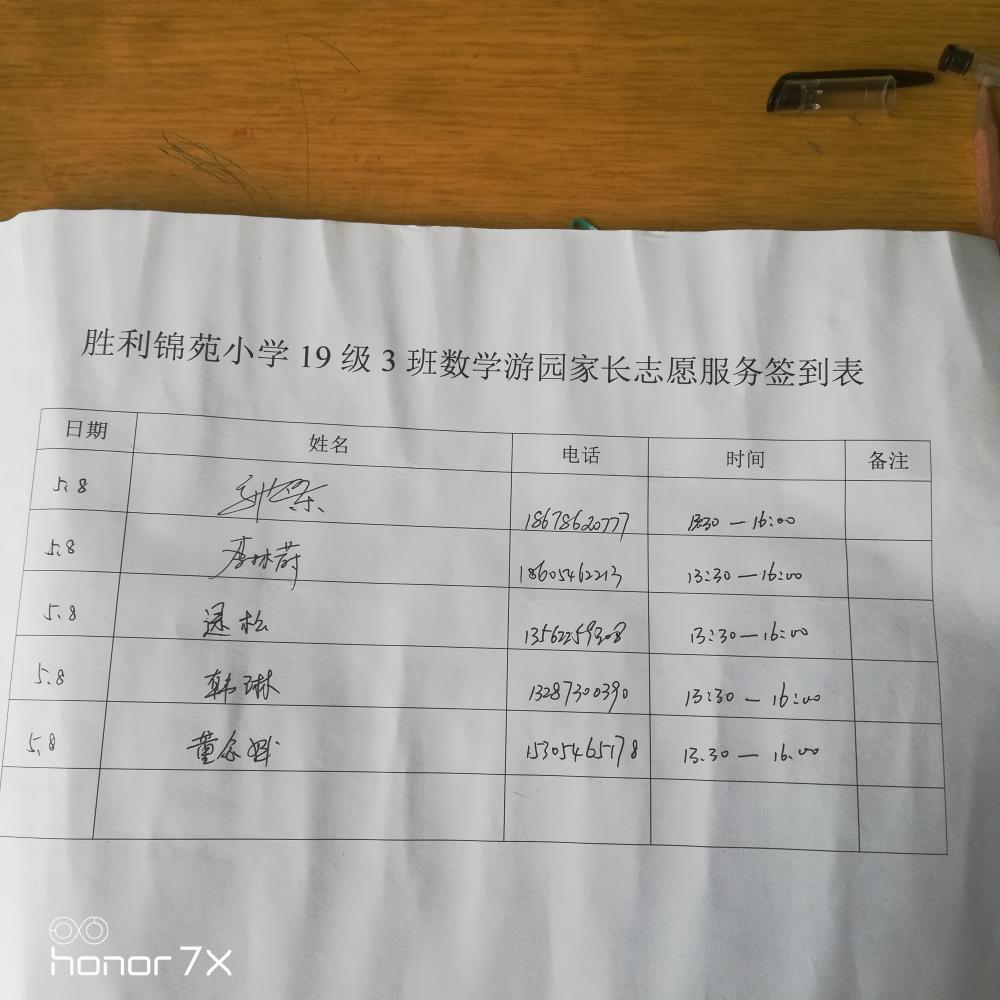 胜利锦苑小学 19 级 3 班数学游园家长志愿服务签到表
日期 姓名 电话 时间 备注
5.8 18678620777 13:30 — 16:00
5.8 18605462213 13:30 — 16:00
5.8 松 13:30 — 16:00
5.8 韩琳 13287300390 13:30 — 16:00
5.8 董 15305465178 13.30 — 16.00
honor 7X